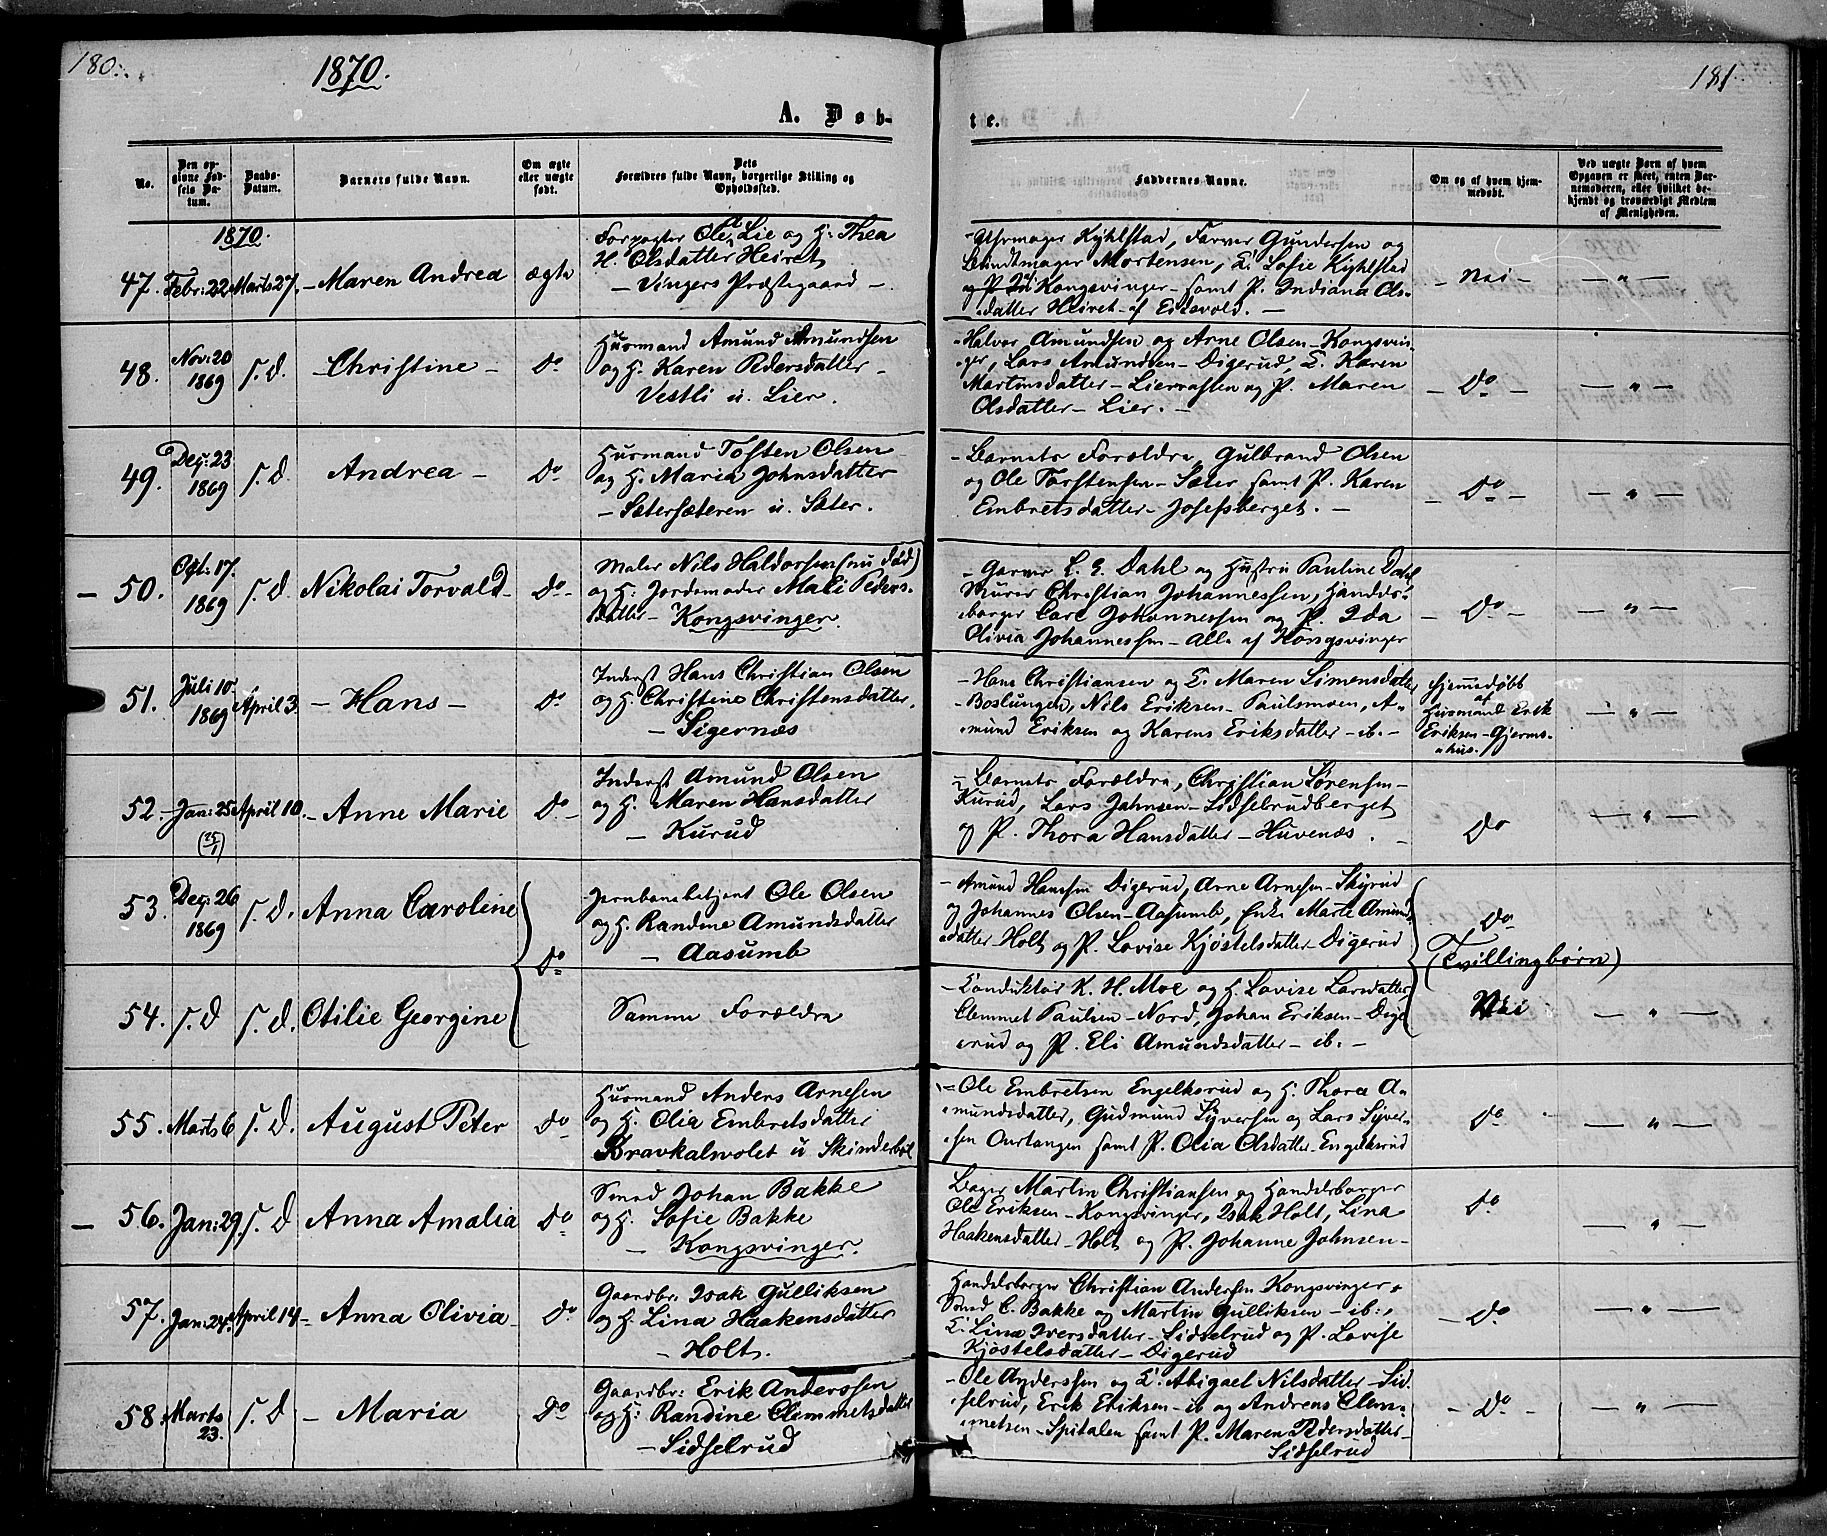 180.
1870.
181.
A. Døb-
te.
No.
Den op-
givne Fød-
sels Da-
tum.
Daabs-
Datum.
Barnets fulde Navn.
Om ægte
eller uægte
født.
Dets
Forældres fulde Navn, borgerlige Stilling og
Opholdssted.
Faddernes Navne.
Om og af hvem hjem-
medøbt.
Ved uægte Børn af hvem
Opgaven er skeet, enten Bar-
nemoderen, eller hvilket be-
kjendt og troværdigt Medlem
af Menigheden.
1870.
47. Febr: 22 Marts 27. - Maren Andrea ægte
Forpagter Ole A Lie og H: Thea
H. Olsdatter Heiret
- Vingers Præstegaard -
- Uhrmager Kyhlstad, Farver Gundersen og
Bundtmager Mortensen, E. Sofie Kyhlstad
Kongsvinger - samt P. Indiana Ols-
datter Heiret af Eidsvold. -
- Nei -
- " -
48. Nov: 20
1869 s. d. - Christine - do
Husmand Amund Amundsen
og H. Karen Pedersdatter -
Vestli u. Lier.
- Halvor Amundsen og Arne Olsen - Kongsvin-
ger, Lars Amundsen - Digerud, E. Karen
Martinsdatter - Liervassen og P. Maren
Olsdatter - Lier. -
- do -
- " -
49. Dec: 23
1869 s. d. Andrea - do
Husmand Tosten Olsen
og H. Maria Johnsdatter
- Sætersæteren u. Sæter.
- Barnets Forældre, Gulbrand Olsen
og Ole Torstensen - Sæter samt P. Karen
Embretsdatter - Josefsberget. -
- do -
- " -
- 50. Oct: 17.
1869 s. d. Nikolai Torvald - do -
Maler Nils Haldorsen (nu død)
og H. Jordemoder Mali Peders-
datter - Kongsvinger.
- Garver L. E. Dahl og Hustru Pauline Dahl
Murer Christian Johannessen, Handels-
borger Carl Johannessen og P. Ida
Olivia Johannessen - Alle af Kongsvinger
- do -
- " -
51. Juli 10.
1869 April 3 - Hans - do
Inderst Hans Christian Olsen
og H. Christine Christensdatter,
- Sigernæs
- Hans Christiansen og E. Maren Simensdatter
- Boslungen, Nils Eriksen - Paulsmoen, A-
mund Eriksen og Karens Eriksdatter - ib. -
Hjemmedøbt
af
Husmand Erik
Eriksen - Gjerms-
hus.
- " -
52. - Jan: 25 April 10. - Anne Marie do -
(25/1)
Inderst Amund Olsen
og H. Maren Hansdatter
- Kurud
- Barnets Forældre, Christian Sørensen -
Kurud, Lars Jahnsen - Sidselrudberget
og P. Thora Hansdatter - Huvenæs. -
do
- " -
53. Dec: 26
1869 s. d. Anna Caroline
Jernbanebetjent Ole Olsen
og H. Randine Amundsdatter
- Aasumb
- Amund Hansen Digerud, Arne Arnesen - Skyrud
og Johannes Olsen - Aasumb, Enke Marte Amunds-
datter - Holt og P. Lovise Kjøstelsdatter - Digerud
do
(Tvillingbørn)
do
54. s. d. s. d. Otilie Georgine
Samme Forældre
- Konduktør K. H. Moe og H. Lovise Larsdatter
Clemmet Paulsen - Nord, Johan Eriksen - Dige-
rud og P. Eli Amundsdatter - ib. -
Nei
- " -
55. Marts 6 s. d. August Peter do
Husmand Anders Arnesen
og H. Olia Embretsdatter
Bravkalvolet u. Skinderbøl
- Ole Embretsen Engelksrud og H. Thora A-
mundsdatter, Gudmund Syversen og Lars Syver-
sen Ourtangen samt P. Olia Olsdatter - Engelksrud
do
- " -
- 56. Jan: 29. s. d. Anna Amalia do
Smed Johan Bakke
og H. Sofie Bakke
- Kongsvinger.
Bager Martin Christiansen og Handelsborger
Ole Eriksen - Kongsvinger, Isak Holt, Lina
Haakensdatter - Holt og P. Johanne Johnsen -
do
- " -
57. Jan: 24. April 14 - Anna Olivia - do
Gaardbr. Isak Gulliksen
og H. Lina Haakensdatter
- Holt.
Handelsborger Christian Andersen Kongsvinger,
Smed C. Bakke og Martin Gulliksen - ib:,
E. Lina Iversdatter - Sidselrud og P. Lovise
Kjøstelsdatter - Digerud
- do
- " -
58. Marts
23. s. d. - Maria do
Gaardbr: Erik Anderssen
og H: Randine Clemmetsdatter
- Sidselrud
- Ole Anderssen og E. Abigael Nilsdatter - Sid-
selrud, Erik Eriksen - ib og Andreas Clem-
metsen - Spitalen samt P. Maren Pedersdatter -
Sidselrud
- do -
- " -